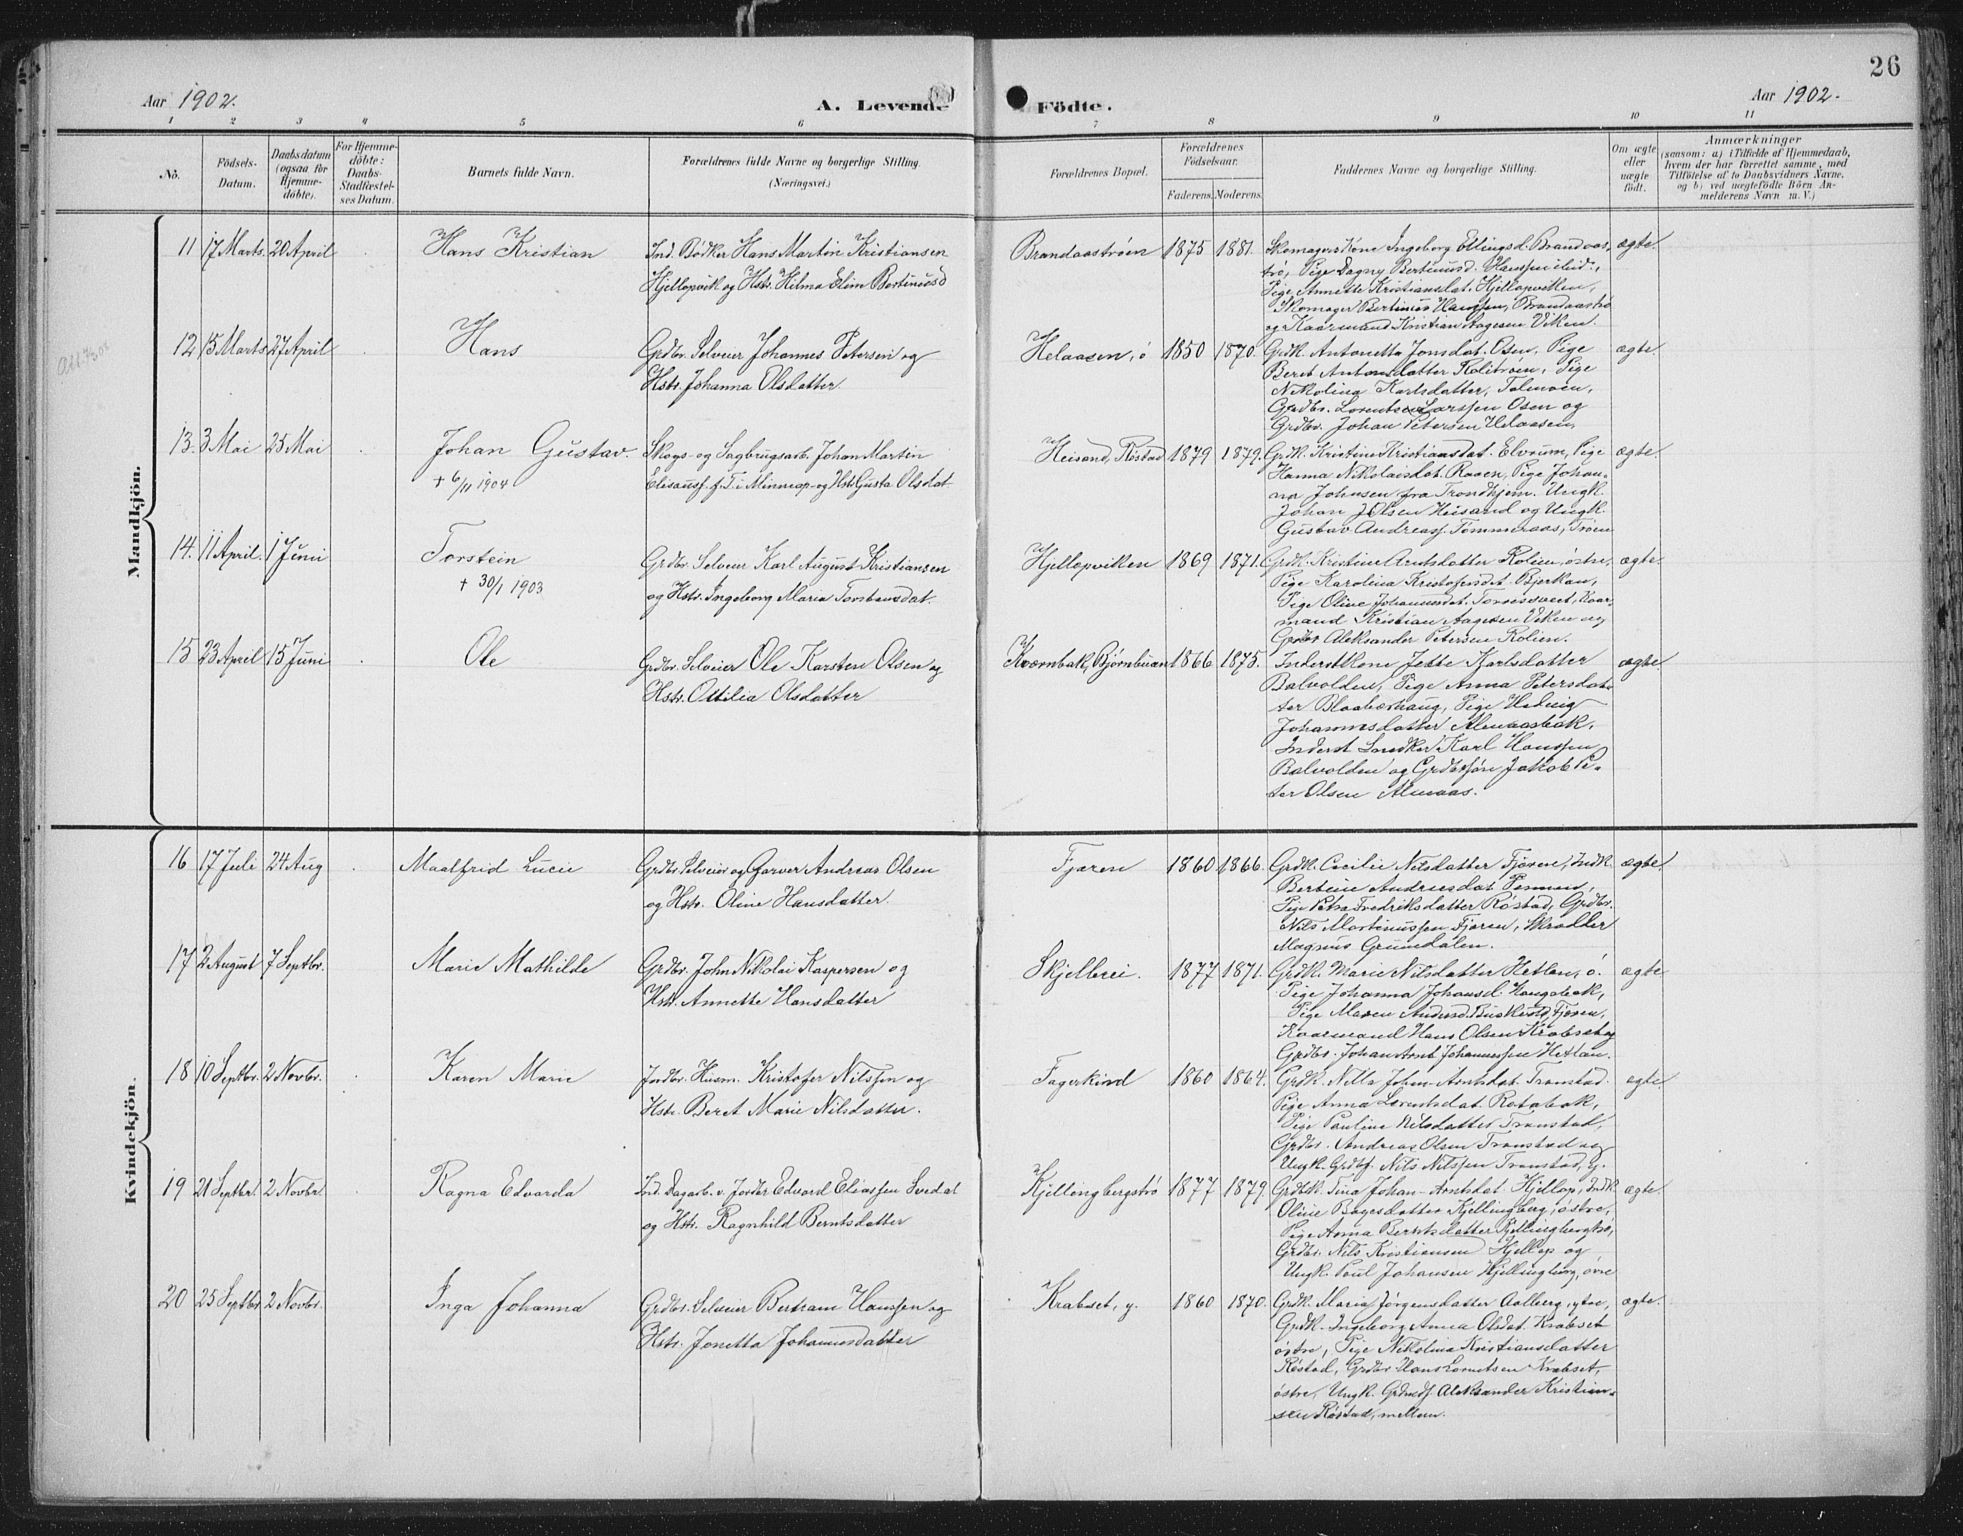 26
Aar 1902.
A. Levende Födte.
Aar 1902.
1 2 3 4 5 6 7 8 9 10 11
No.
Födsels-
Datum.
Daabsdatum
(ogsaa for
Hjemme-
döbte).
For Hjemme-
döbte:
Daabs-
Stadfestel-
ses Datum.
Barnets fulde Navn.
Forældrenes fulde Navne og borgerlige Stilling.
(Næringsvei.)
Forældrenes Bopæl.
Forældrenes
Födselsaar.
Faderens. Moderens.
Faddernes Navne og borgerlige Stilling.
Om ægte
eller
uægte
födt.
Anmærkninger
(saasom: a) i Tilfælde af Hjemmedaab,
hvem der har forrettet samme, med
Tilföielse af to Daabsvidners Navne,
og b) ved uægtefödte Börn An-
melderens Navn m. V.)
Mandkjön.
11 17 Marts 20 April Hans Kristian
Ind. Bödker Hans Martin Kristiansen
Hjellopvik og Hstr. Hilma Elim Bertinusd
Brandaastrøen 1875 1881.
Skomagerskone Ingeborg Ellingsd. Brandaas
trø, Pige Dagny Bertinusd. Hanssen ibid.,
Pige Annette Kristiansdat. Hjellopviken,
Skomager Bertinus Hanssen, Brandaastrø
og Kaarmand Kristian Aagesen Viken.
ægte.
12 15 Marts 27 April Hans
Grdbr. Selveier Johannes Petersen og
Hstr. Johanna Olsdatter
Helaasen, ö 1850 1870.
Grdk. Antonetta Jonsdat. Osen, Pige
Beret Antonsdatter Rolitrøen, Pige
Nikolina Karlsdatter,
Grdbr. Lorents Larssen Osen og
Grdbr. Johan Petersen Helaasen
ægte.
13. 3 Mai 25 Mai Johan Gustav
+ 6/11 1904
Skogs- og Sagbrugsarb. Johan Martin
Elisaussf. f. T. i Minneap. og Hstr. Gusta Olsdat.
Heisand, Röstad 1879 1879.
Grdk. Kristine Kristiansdat. Elvrum, Pige
Hanna Nikolaisdat. Raaen, Pige Johan-
na Johnsen fra Trondhjem. Ungk.
Johan J Olsen Heisand og Ungk.
Gustav Andreass. Tømmeraas, Trøen
ægte.
14. 11 April. 1 Juni Torstein
+ 30/1 1903
Grdbr. Selveier Karl August Kristiansen
og Hstr. Ingeborg Maria Torstensdat.
Hjellopviken 1869 1871.
Grdk. Kristine Arntsdatter Rolien, östre,
Pige Karolina Kristofersdat. Bjerkan,
Pige Oline Johannesdat. Kaar-
mand Kristian Aagesen Viken og
Grdbr. Aleksander Petersen Rolien.
ægte.
15 23 April 15 Juni Ole
Grdbr. Selveier Ole Karsten Olsen og
Hstr. Ottilia Olsdatter
Kværnbak, Bjørnbuan 1866 1875.
Inderstkone Jette Karlsdatter
Balvolden, Pige Anna Petersdat-
ter Blaabærhaug, Pige Hedvig
Johannesdatter Almaasbak,
Inderst Snedker Karl Hanssen
Balvolden og Grdbrsøn Jakob Pe-
ter Olsen Almaas.
ægte
Kvindekjön.
16 17 Juli 24 Aug Maalfrid Lucie
Grdbr. Selveier og Garver Andreas Olsen
og Hstr. Oline Hansdatter.
Fjæren 1860 1866.
Grdk. Cecilie Nilsdatter Fjæren, Indk.
Berteine Andreasdat.
Pige Petra Fredriksdatter Røstad, Grdbr.
Nils Martinussen Fjæren, Skrædder
Magnus Grundalen.
ægte.
17 2 August 7 Septbr. Marie Mathilde
Grdbr. John Nikolai Kaspersen og
Hstr. Annette Hansdatter
Skjelbrei. 1877 1871.
Grdk. Marie Nilsdatter Hetlan, ö.
Pige Johanna Johansd. Haugsbak,
Pige Maren Andersd. Fjæren,
Kaarmand Hans Olsen Krabset og
Grdbr. Johan Arnt Johannessen Hetlan.
ægte
18 10 Septbr. 2 Novbr. Karen Marie
Jordbr. Husm. Kristofer Nilssen og
Hstr. Beret Marie Nilsdatter.
Fagerkind 1860 1864.
Grdk. Nella Johan-Arntsdat. Transtad.
Pige Anna Lorentsdat. Rotabak,
Pige Pauline Nilsdatter Transtad,
Grdbr. Andreas Olsen Transtad og
Ungk. Grdbf. Nils Nilssen Transtad, y.
ægte.
19 21 Septbr. 2 Novbr. Ragna Edvarda
Ind. Dagarb. v. Jorder Edvard Eliassen Svedal
og Hstr. Ragnhild Berntsdatter
Kjellingbergströ 1877 1879
Grdbk. Tina Johan-Arntsdat. Hjellop, Indk.
Oline Bøyesdatter Kjellingberg, østre,
Pige Anna Berntsdatter Kjellingbergtrö,
Grdbr. Nils Kristiansen Hjellop og
Ungk. Paul Johansen Kjellingberg, øvre
ægte.
20 25 Septbr. 2 Novbr. Inga Johanna
Grdbr. Selveier Bertram Hanssen og
Hstr. Jonetta Johannesdatter
Krabset, y. 1860 1870.
Grdk. Maria Jørgensdatter Aalberg, ytre,
Grdk. Ingeborg Anna Olsdat. Krabset
östre, Pige Nikolina Kristiansdatter
Röstad, Grdbr. Hans Lorentsen Krabset,
östre, Ungk. Grdmdf. Aleksander Kristian-
sen Röstad, mellem.
ægte.